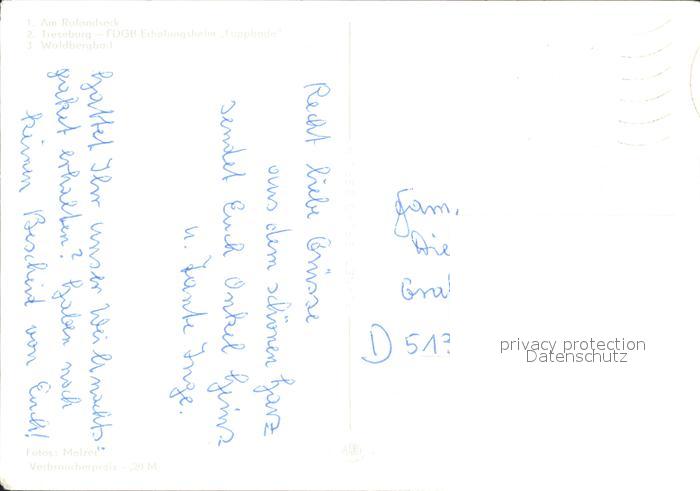 1. Am Rolandseck
2. Treseburg — FDGB-Erholungsheim „Tuppbode"
3. Waldbergho
Recht liebe Grüsse
aus dem schönen Harz
sendet Euch Onkel Heinz
u. Tante Inge.
Hattet Ihr unser Weihnachts-
paket erhalten? Haben noch
keinen Bescheid von Euch!
Fam.
Die
Gra
D 51
privacy protection
Datenschutz
Fotos: Melzer
Verbraucherpreis -,20 M